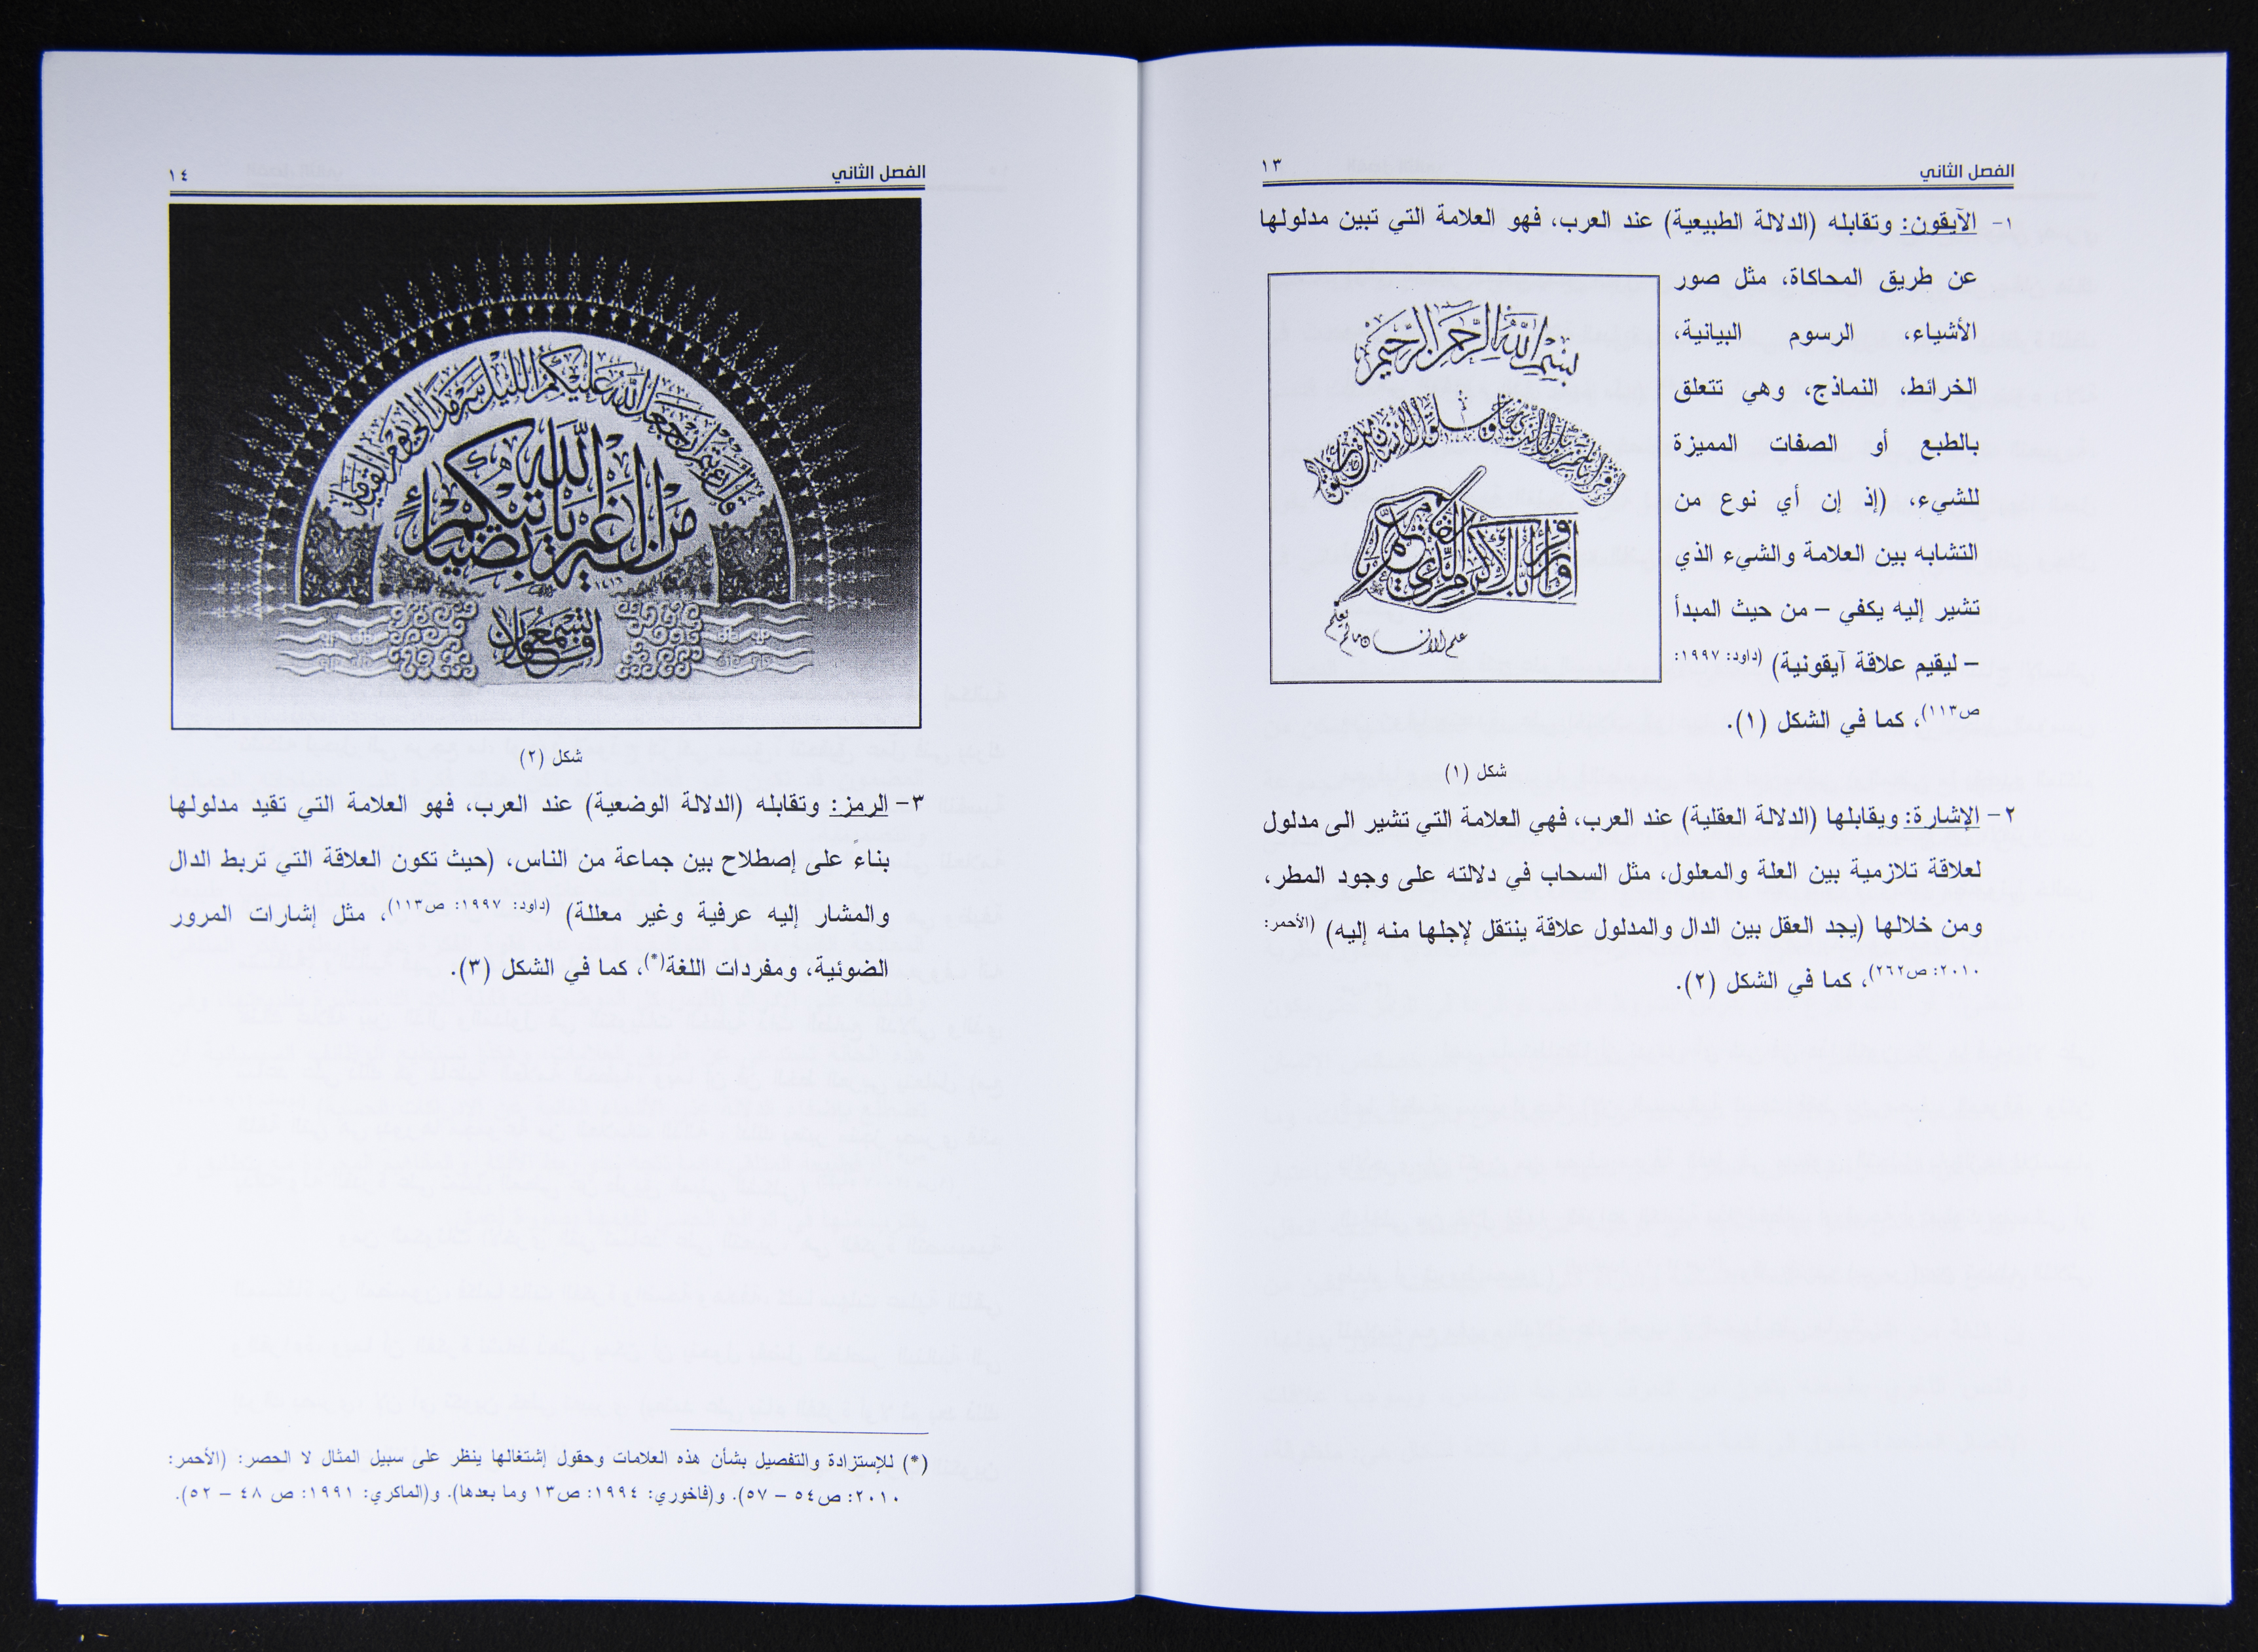 الفصل الثاني
١٣
١- الآيقون: وتقابله (الدلالة الطبيعية) عند العرب، فهو العلامة التي تبين مدلولها
عن طريق المحاكاة، مثل صور
الأشياء، الرسوم البيانية،
الخرائط، النماذج، وهي تتعلق
بالطبع أو الصفات المميزة
للشيء، (إذ إن أي نوع من
التشابه بين العلامة والشيء الذي
تشير إليه يكفي – من حيث المبدأ
– ليقيم علاقة آيقونية) (داود: ١٩٩٧:
ص١١٣)، كما في الشكل (١).
بسم الله الرحمن الرحيم
اقرأ وربك الأكرم الذي علم بالقلم
علم الانسان مالم يعلم
شكل (١)
٢- الإشارة: ويقابلها (الدلالة العقلية) عند العرب، فهي العلامة التي تشير الى مدلول
لعلاقة تلازمية بين العلة والمعلول، مثل السحاب في دلالته على وجود المطر،
ومن خلالها (يجد العقل بين الدال والمدلول علاقة ينتقل لإجلها منه إليه) (الأحمر:
٢٠١٠: ص٢٦٢)، كما في الشكل (٢).
الفصل الثاني
١٤
من اله غير الله يأتيكم بضياء
١٤١٦
افلا تسمعون
شكل (٢)
٣- الرمز: وتقابله (الدلالة الوضعية) عند العرب، فهو العلامة التي تقيد مدلولها
بناءً على إصطلاح بين جماعة من الناس، (حيث تكون العلاقة التي تربط الدال
والمشار إليه عرفية وغير معللة) (داود: ١٩٩٧: ص١١٣)، مثل إشارات المرور
الضوئية، ومفردات اللغة(*)، كما في الشكل (٣).
(*) للإستزادة والتفصيل بشأن هذه العلامات وحقول إشتغالها ينظر على سبيل المثال لا الحصر: (الأحمر:
٢٠١٠: ص٥٤ – ٥٧). و(فاخوري: ١٩٩٤: ص١٣ وما بعدها). و(الماكري: ١٩٩١: ص ٤٨ – ٥٢).